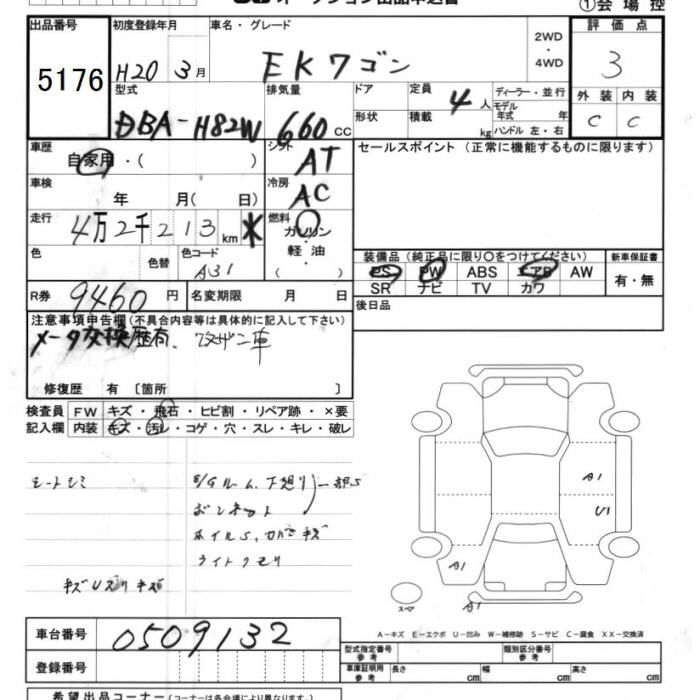 オークション出品申込書
①会場控
出品番号
5176
初度登録年月
H20 3月
車名・グレード
EKワゴン
2WD
・
4WD
評価点
3
型式
DBA-H82W
排気量
660cc
ドア
形状
定員
4人
積載
kg
ディーラー・並行
モデル
年式 年
ハンドル 左・右
外装 内装
C C
車歴
自家用・( )
シフト
AT
セールスポイント(正常に機能するものに限ります)
車検
年 月( 日)
冷房
AC
走行
4万2千213km *
燃料
ガソリン
・
軽油
( )
色
色替
色コード
A31
装備品(純正品に限り○をつけてください)
PS PW ABS エアB AW
SR ナビ TV カワ
新車保証書
有・無
R券
9460円
名変期限 月 日
後日品
注意事項申告欄(不具合内容等は具体的に記入して下さい)
メータ交換歴有、改ザン車
修復歴 有 〔箇所 〕
検査員
記入欄
FW キズ・飛石・ヒビ割・リペア跡・×要
内装 キズ・汚レ・コゲ・穴・スレ・キレ・破レ
シートシミ
下廻り 一部S
ボンネット
ホイルS、カバーキズ
ライトクモリ
キズUズリキズ
A1
U1
A1
A1
スペア
A-キズ E-エクボ U-凹み W-補修跡 S-サビ C-腐食 XX-交換済
車台番号
0509132
登録番号
型式指定番号
参考
類別区分番号
参考
車庫証明用
参考
長さ cm 幅 cm 高さ cm
希望出品コーナー(コーナーは各会場により異なります。)